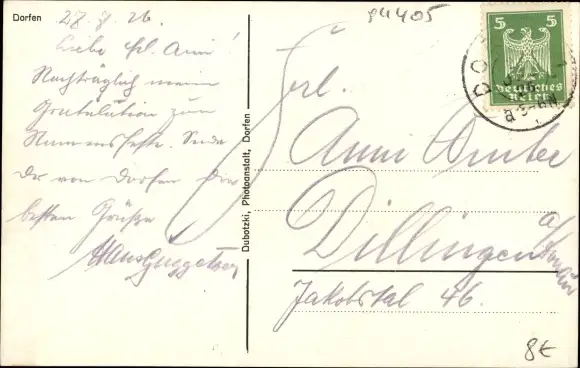 Dorfen
27. 7. 26.
Liebe Frl. Anni!
Nachträglich meine
Gratulation zum
Namensfeste. Sende
Dir von Dorfen die
besten Grüße
Hans Guggetzer
Dubotzki, Photoanstalt, Dorfen
94405
5 5
Deutsches
Reich
Frl.
Anni
Dillingen a/Donau
Jakobstal 46.
8€